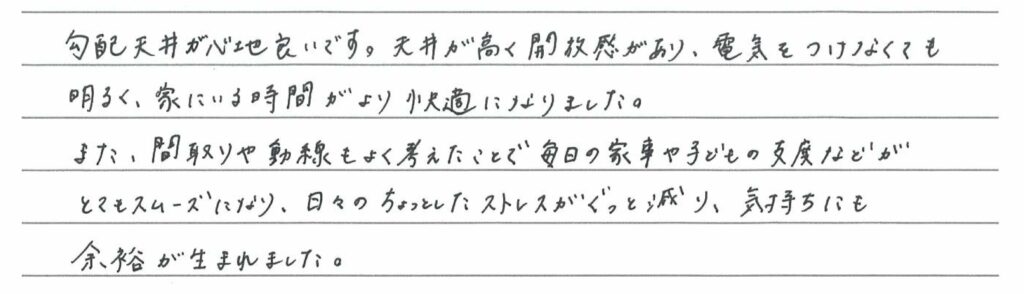 勾配天井が心地良いです。天井が高く開放感があり、電気をつけなくても
明るく、家にいる時間がより快適になりました。
また、間取りや動線もよく考えたことで毎日の家事や子どもの支度などが
とてもスムーズになり、日々のちょっとしたストレスがぐっと減り、気持ちにも
余裕が生まれました。